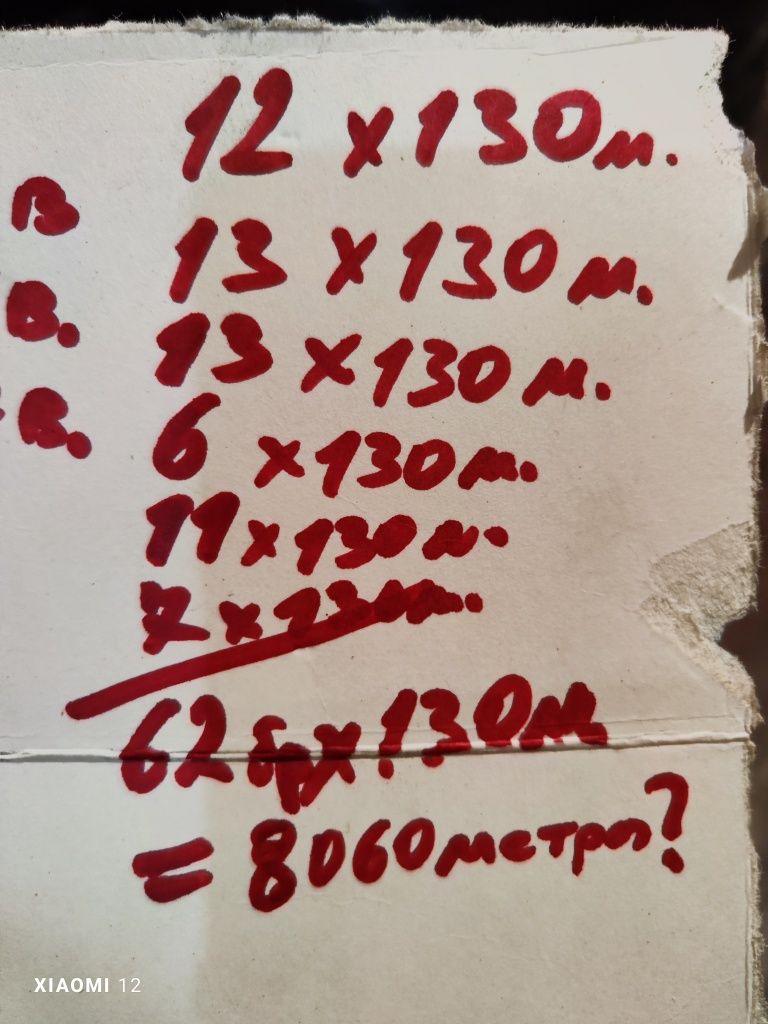 12 x 130 м.
В
13 x 130 м.
В.
13 x 130 м.
В.
6 x 130 м.
11 x 130 м.
7 x 130 м.
62 бр x 130 м
= 8060 метра?
XIAOMI 12